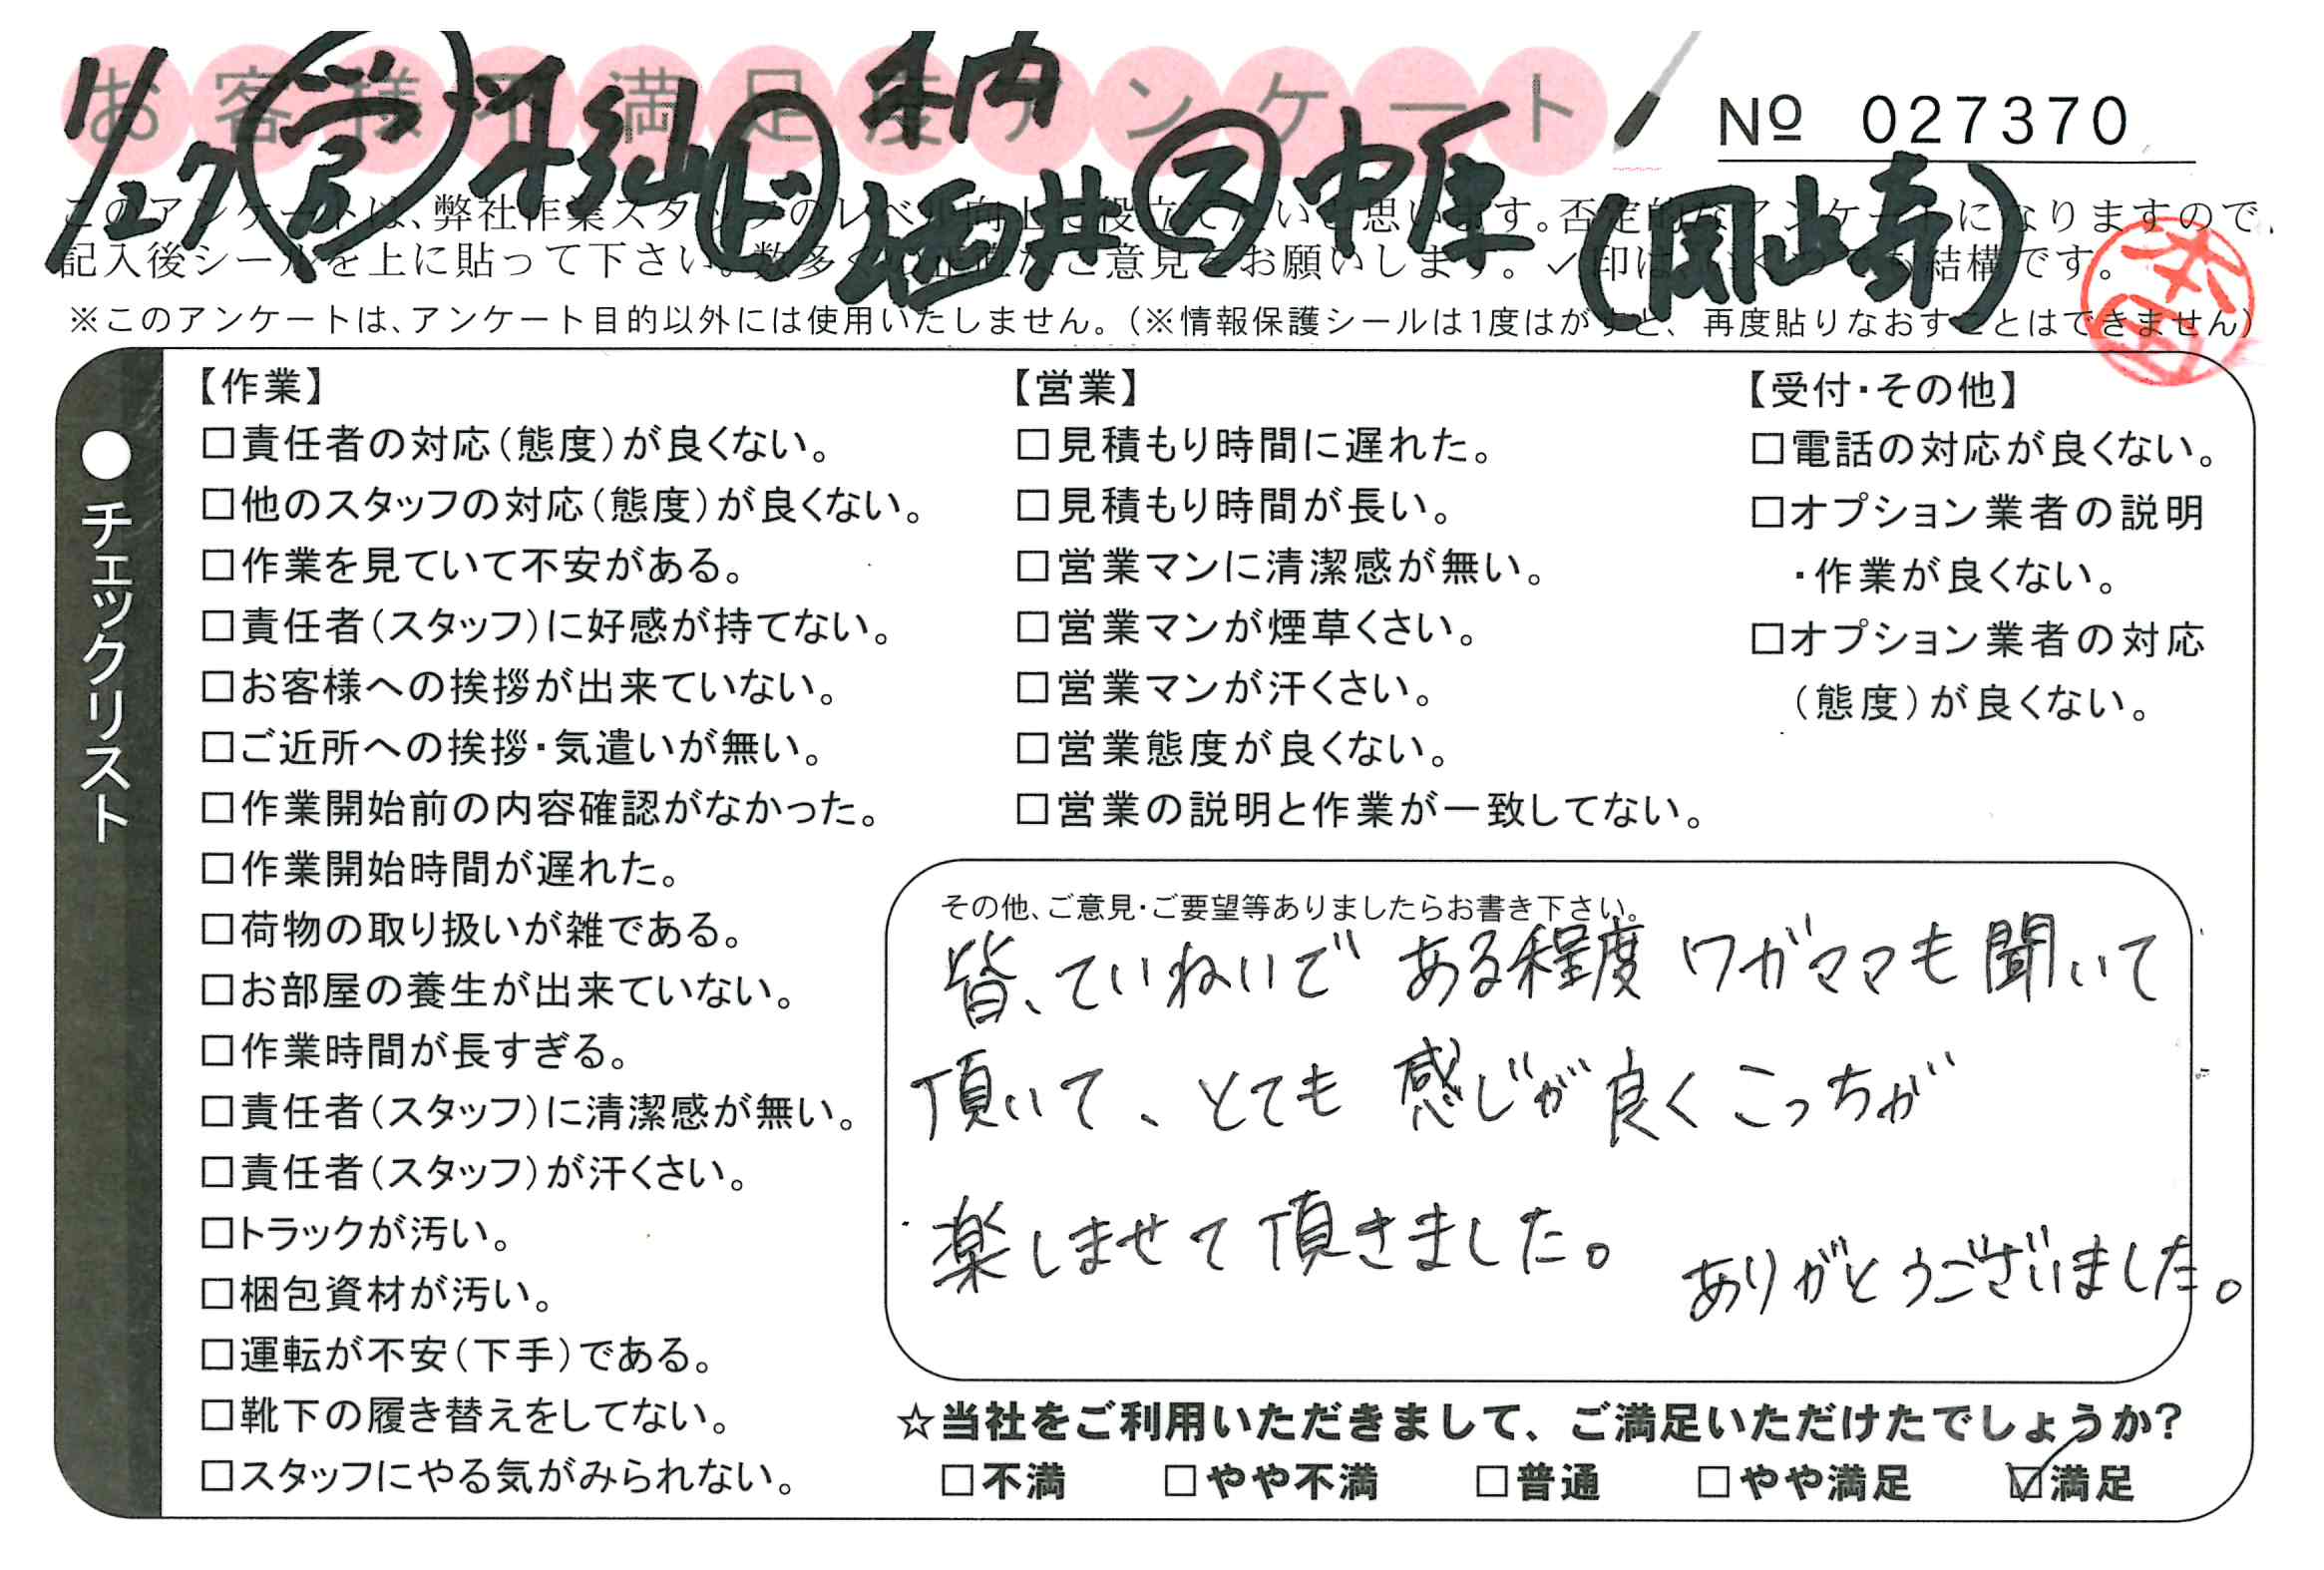 お客様不満足度アンケート
№ 027370
11/27 ㊂杉山 ㋣
納
栖井 ㋜中原 (岡山南)
このアンケートは、弊社作業スタッフのレベル向上に役立てたいと思います。否定的なアンケートになりますので、
記入後シールを上に貼って下さい。数多くの正直なご意見をお願いします。✓印はいくつでも結構です。
※このアンケートは、アンケート目的以外には使用いたしません。(※情報保護シールは1度はがすと、再度貼りなおすことはできません)
本田
●チェックリスト
【作業】
□責任者の対応(態度)が良くない。
□他のスタッフの対応(態度)が良くない。
□作業を見ていて不安がある。
□責任者(スタッフ)に好感が持てない。
□お客様への挨拶が出来ていない。
□ご近所への挨拶・気遣いが無い。
□作業開始前の内容確認がなかった。
□作業開始時間が遅れた。
□荷物の取り扱いが雑である。
□お部屋の養生が出来ていない。
□作業時間が長すぎる。
□責任者(スタッフ)に清潔感が無い。
□責任者(スタッフ)が汗くさい。
□トラックが汚い。
□梱包資材が汚い。
□運転が不安(下手)である。
□靴下の履き替えをしてない。
□スタッフにやる気がみられない。
【営業】
□見積もり時間に遅れた。
□見積もり時間が長い。
□営業マンに清潔感が無い。
□営業マンが煙草くさい。
□営業マンが汗くさい。
□営業態度が良くない。
□営業の説明と作業が一致してない。
【受付・その他】
□電話の対応が良くない。
□オプション業者の説明
・作業が良くない。
□オプション業者の対応
(態度)が良くない。
その他、ご意見・ご要望等ありましたらお書き下さい。
皆、ていねいで ある程度 ワガママも聞いて
頂いて、とても 感じが良く こっちが
楽しませて頂きました。 ありがとうございました。
☆当社をご利用いただきまして、ご満足いただけたでしょうか?
□不満 □やや不満 □普通 □やや満足 ☑満足